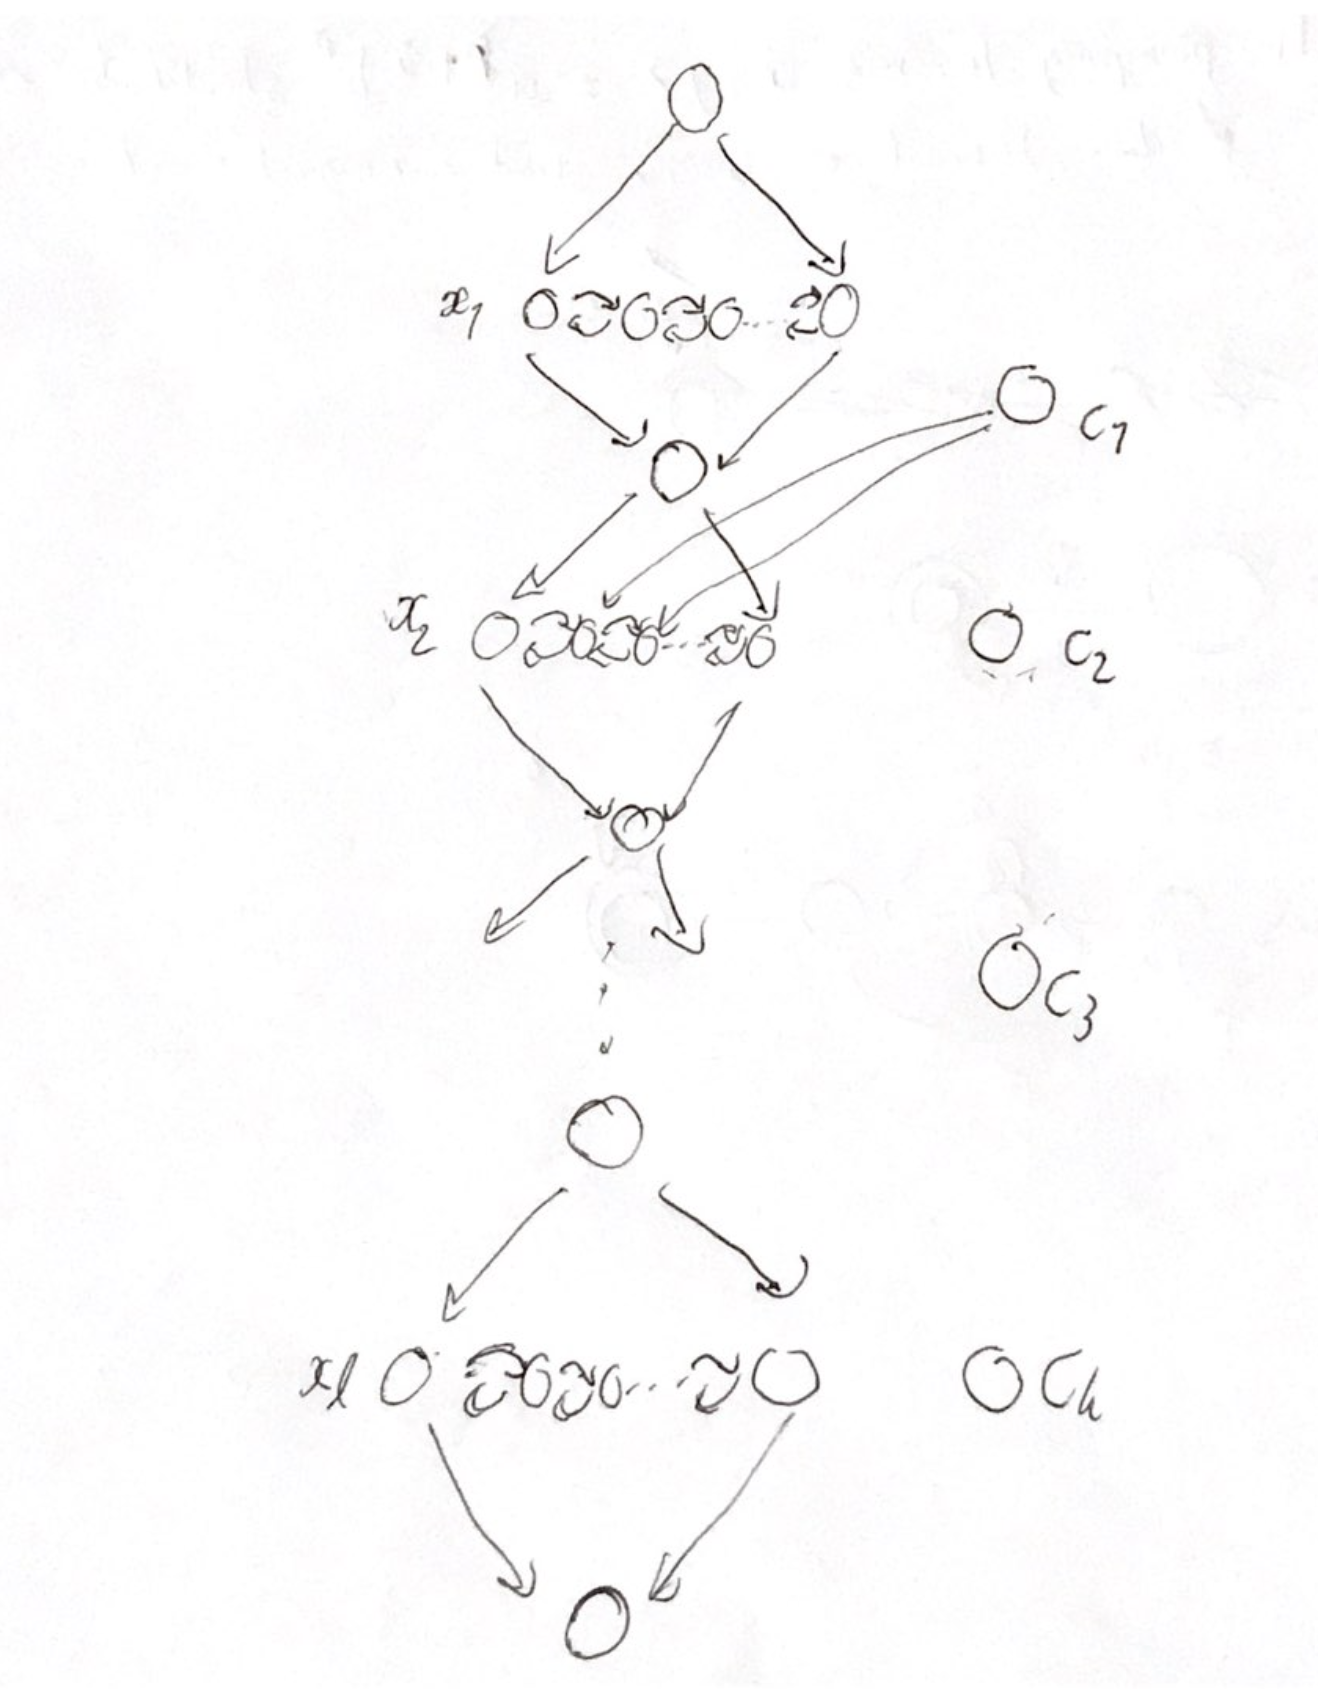 x1
C1
x2
C2
C3
xl
Ck